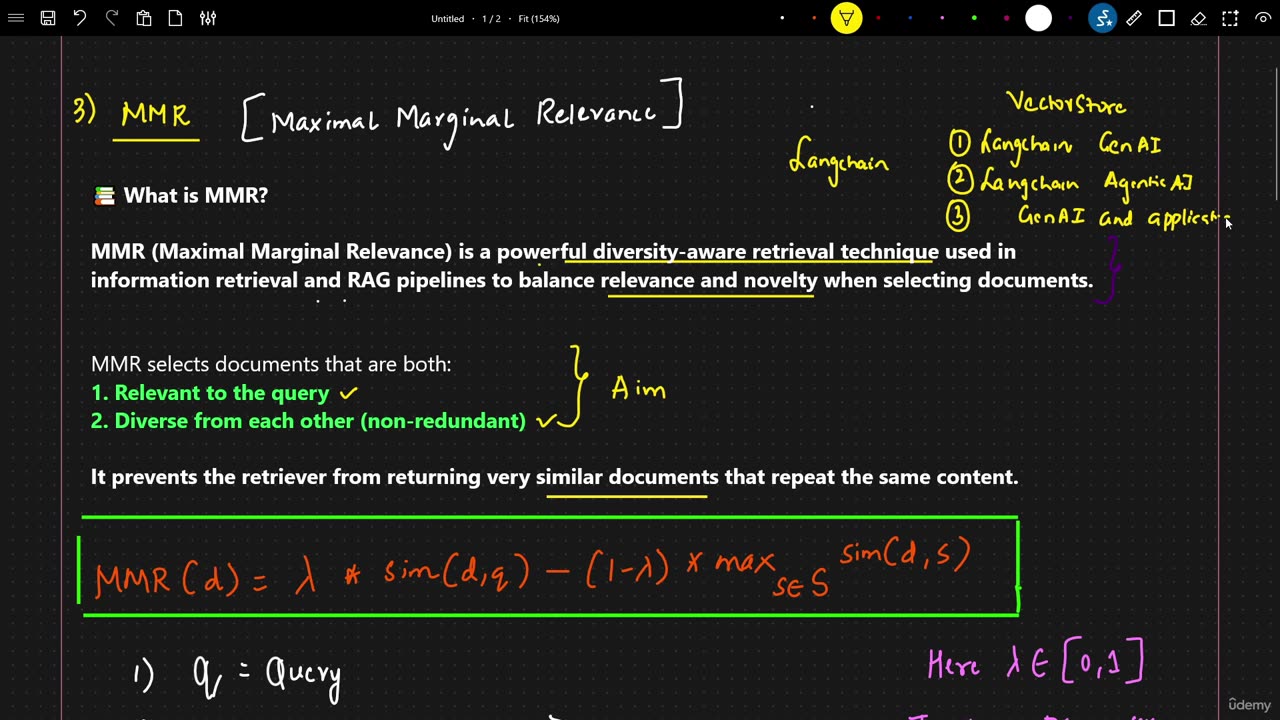 Untitled • 1 / 2 • Fit (154%)
3) MMR [Maximal Marginal Relevance]
VectorStore
Langchain
① Langchain GenAI
② Langchain Agentic AI
③ GenAI and applicatio
What is MMR?
MMR (Maximal Marginal Relevance) is a powerful diversity-aware retrieval technique used in
information retrieval and RAG pipelines to balance relevance and novelty when selecting documents.
MMR selects documents that are both:
1. Relevant to the query
2. Diverse from each other (non-redundant)
Aim
It prevents the retriever from returning very similar documents that repeat the same content.
MMR(d) = λ * sim(d,q) - (1-λ) * max s∈S sim(d,s)
1) q = Query
Here λ ∈ [0,1]
ûdemy